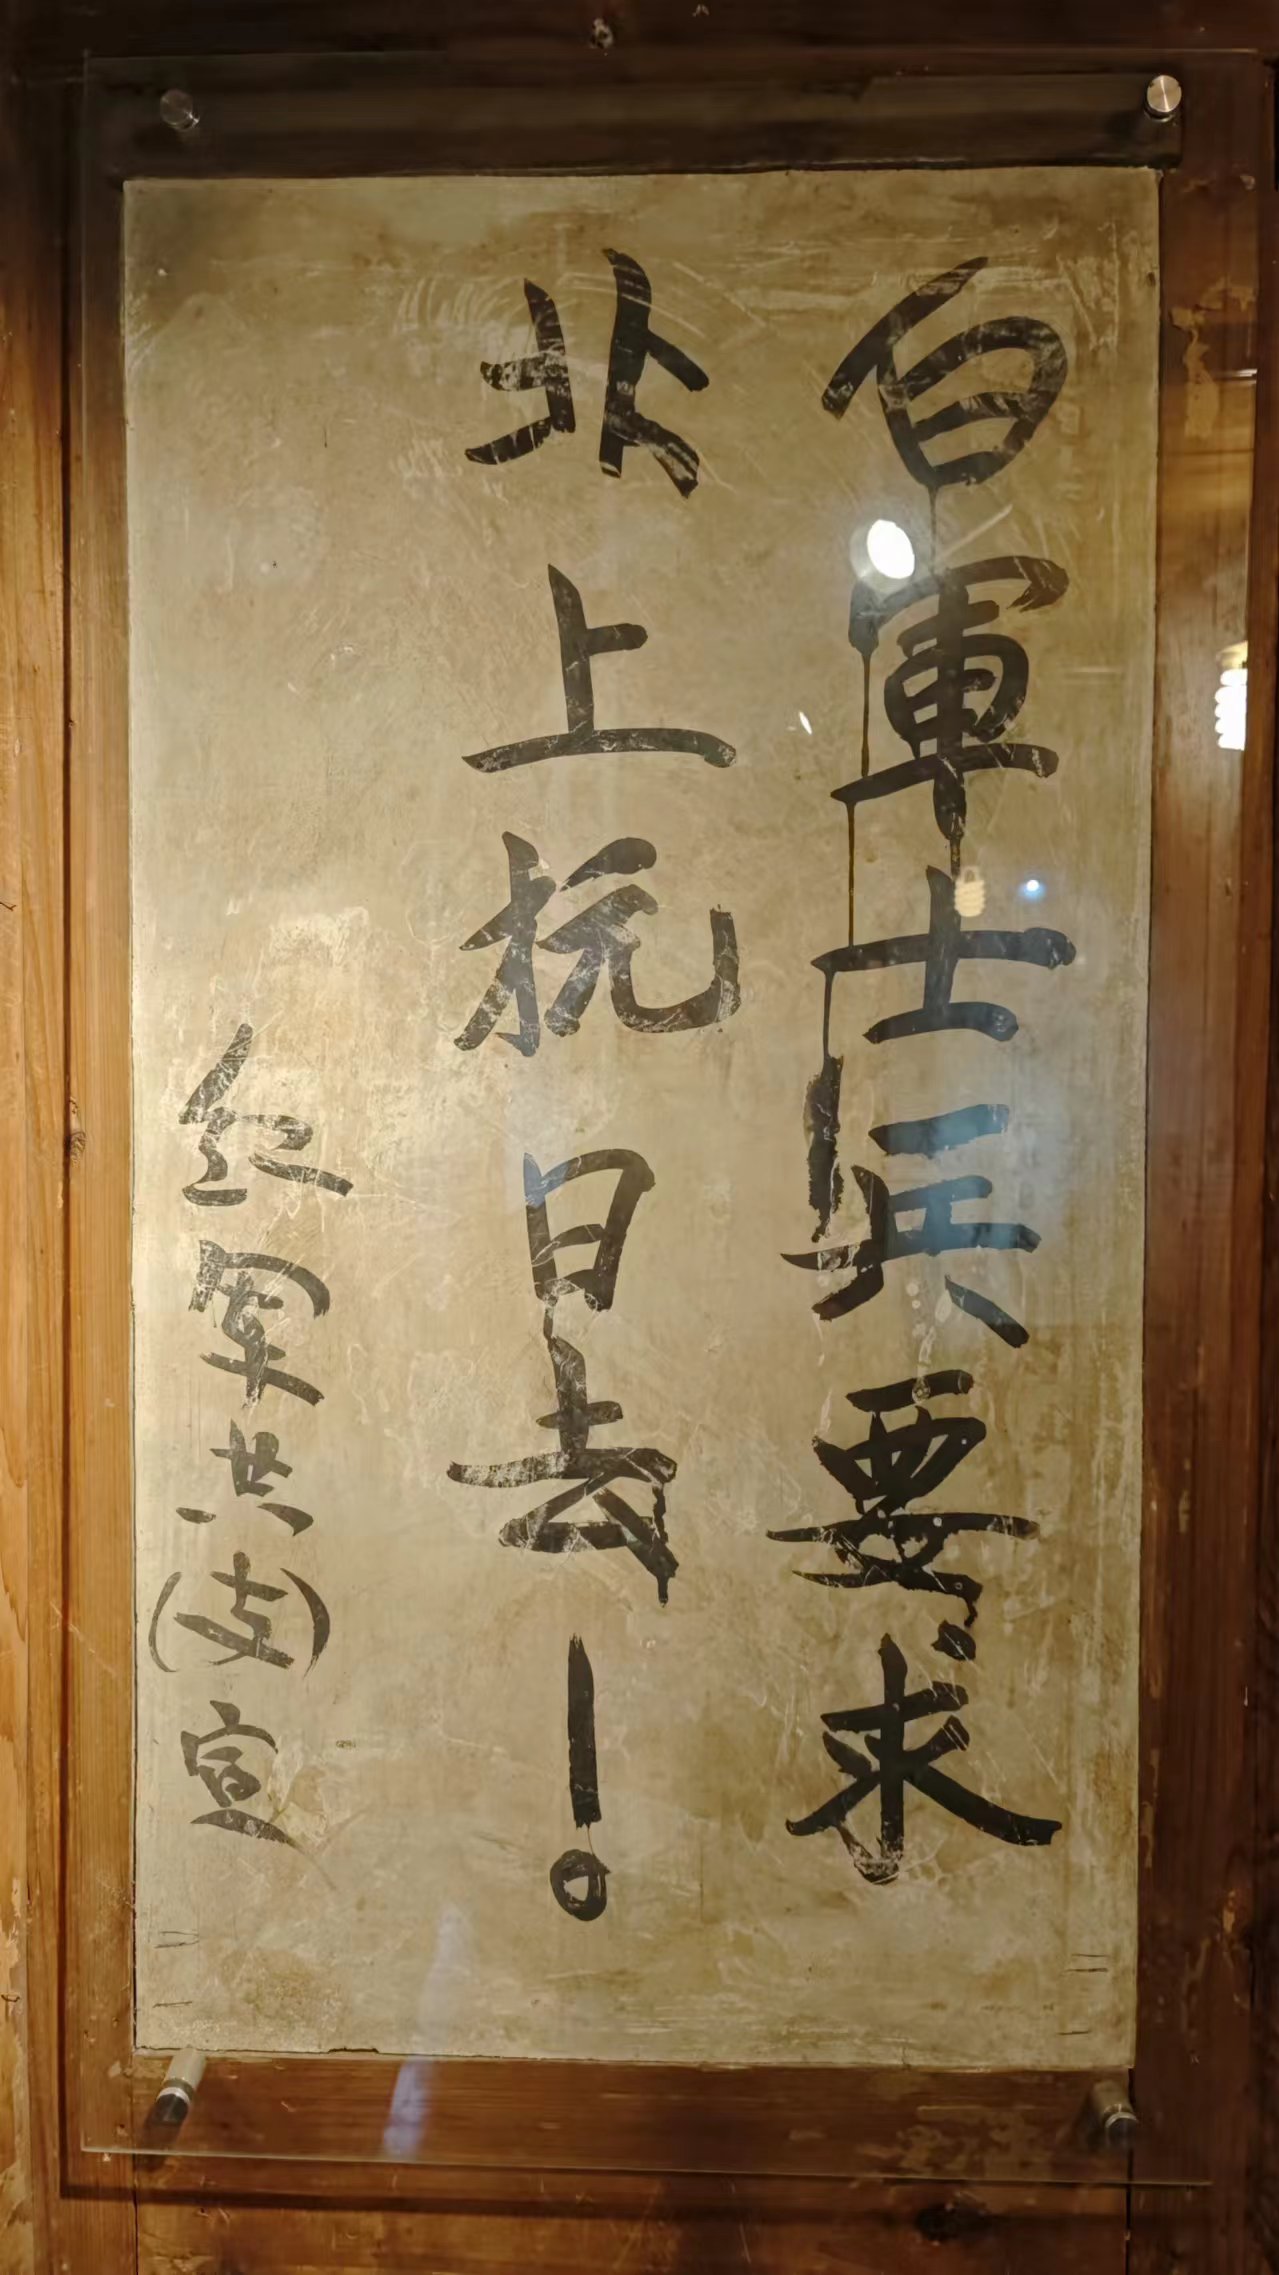 白軍士兵要求
北上抗日去！
红軍洪(支)宣